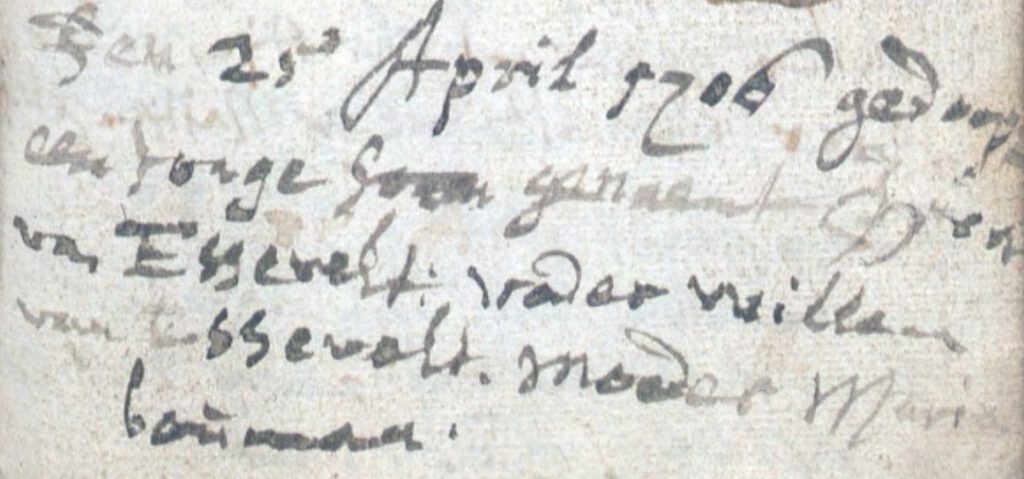 Den 25 April 1706 gedoopt
een jonge soon genaemt
van Essevelt. vader willem
van Essevelt. Moeder Maria
bouman.